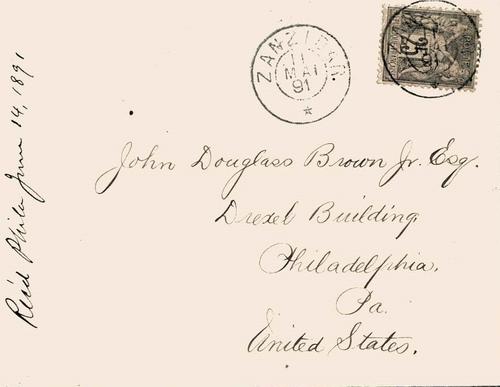 ZANZIBAR.
11
MAI
91
25
John Douglass Brown Jr. Esq.
Drexel Building
Philadelphia,
Pa.
United States.
Rec'd Phila June 14, 1891